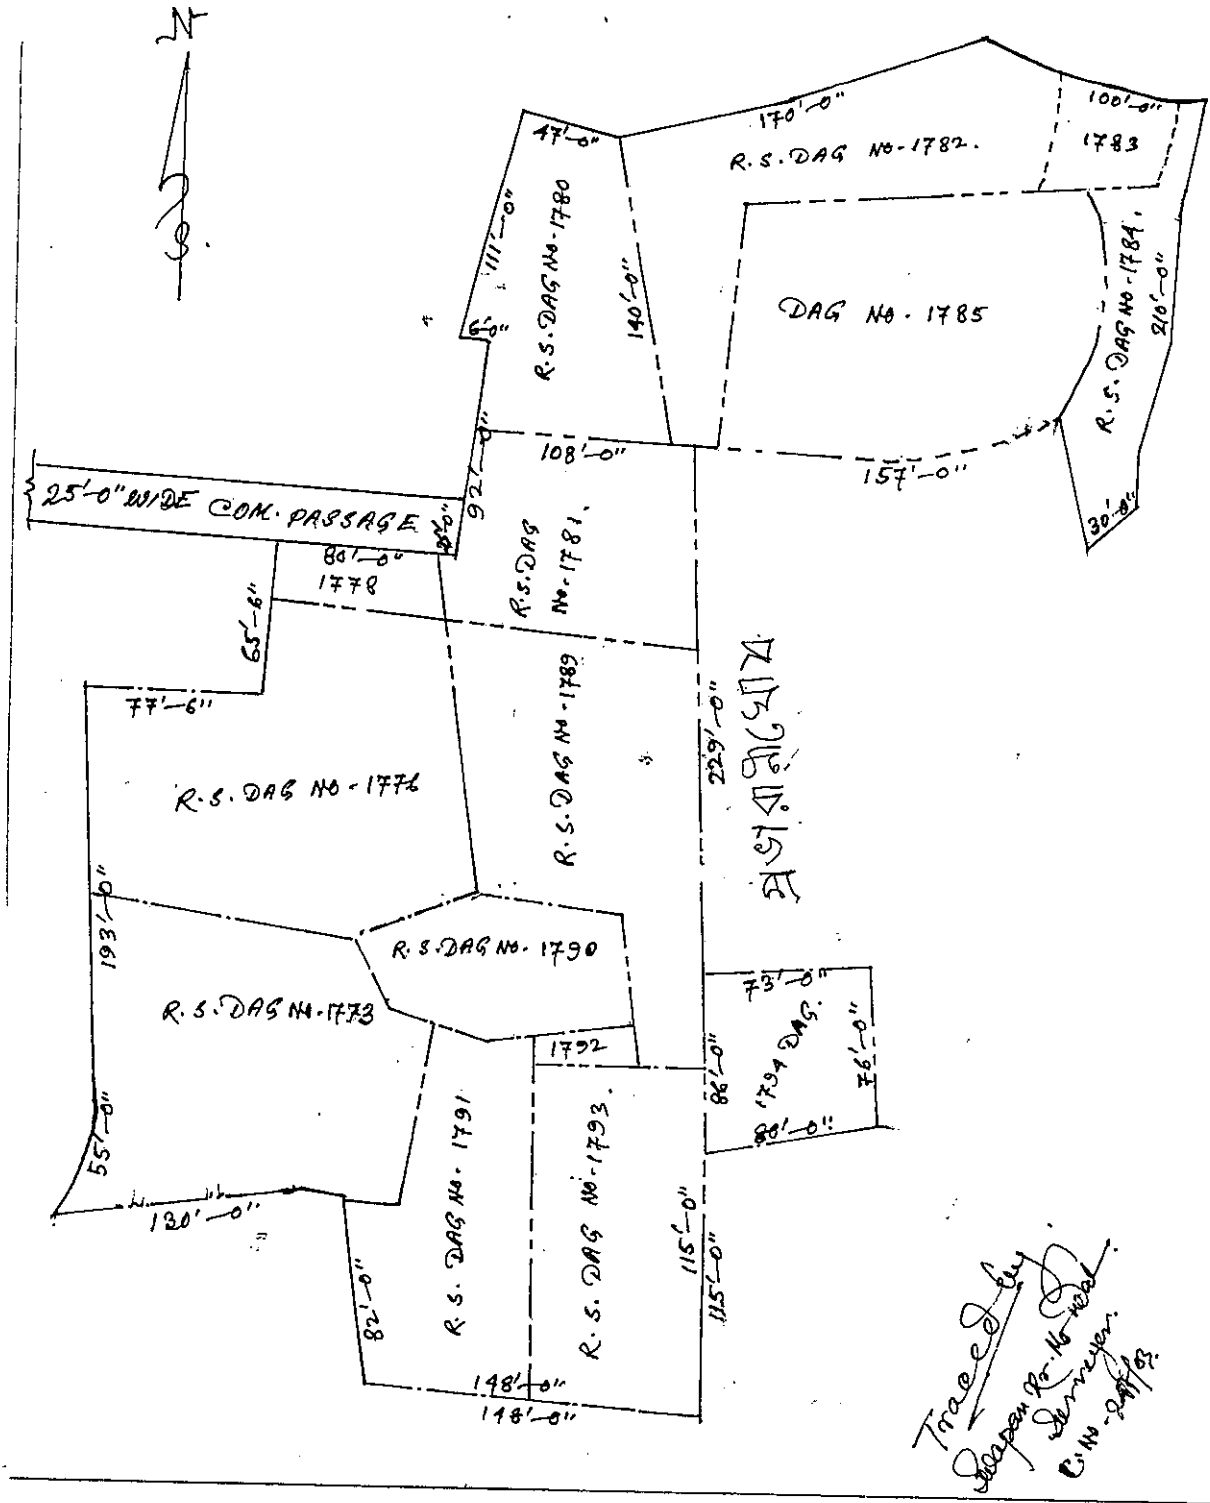 N
S.
47'-0"
170'-0"
100'-0"
1783
R.S. DAG NO-1782.
111'-0"
R.S. DAG NO-1780
140'-0"
DAG NO. 1785
R.S. DAG NO-1784.
210'-0"
6'-0"
92'-0"
108'-0"
157'-0"
30'-0"
25'-0" WIDE COM. PASSAGE
80'-0"
1778
R.S. DAG
NO-1781.
65'-6"
77'-6"
R.S. DAG NO-1776
R.S. DAG NO-1789
229'-0"
193'-0"
R.S. DAG NO. 1790
R.S. DAG NO-1773
1792
73'-0"
1794 DAG.
76'-0"
86'-0"
80'-0"
55'-0"
130'-0"
R.S. DAG NO. 1791
R.S. DAG NO-1793.
115'-0"
115'-0"
82'-0"
148'-0"
148'-0"
Traced by
Surveyor.